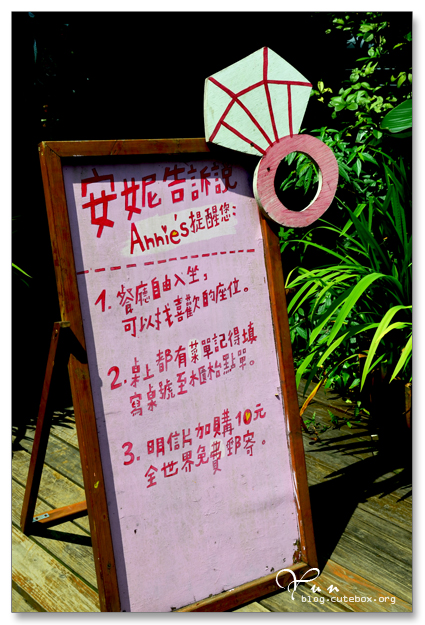 安妮告訴說
Annie's提醒您:
1. 餐廳自由入坐,
可以找喜歡的座位。
2. 桌上都有菜單記得填
寫桌號至櫃枱點單。
3. 明信片加購10元
全世界免費郵寄。
Yun
blog.cutebox.org